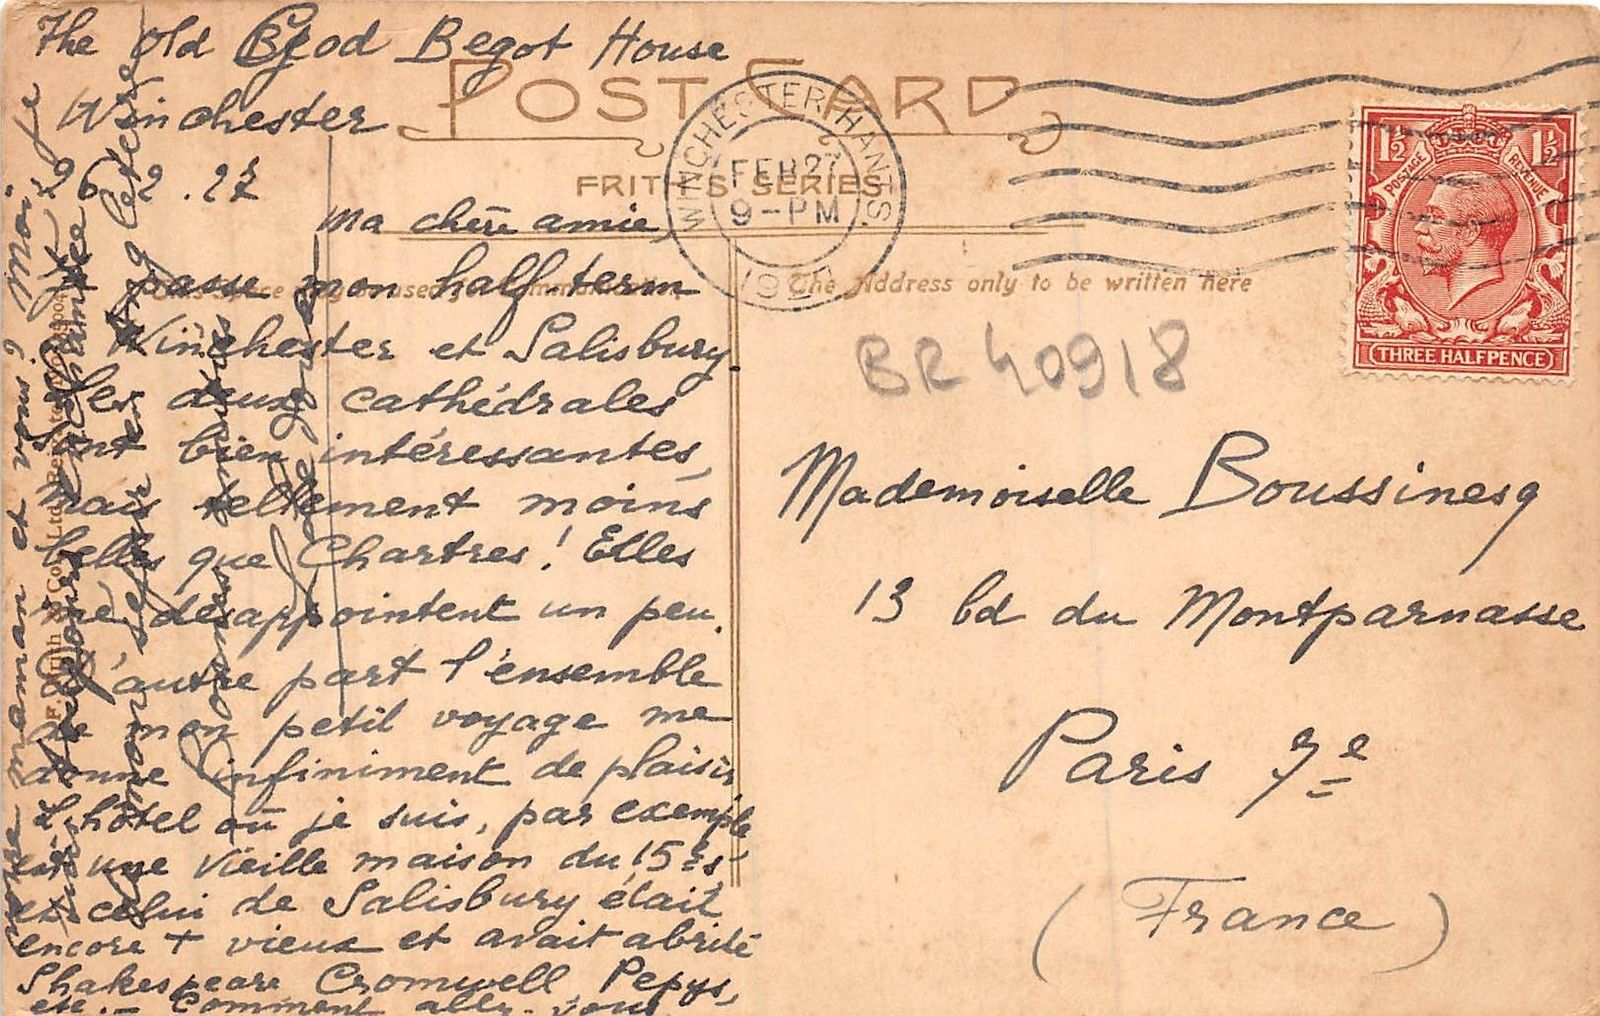 The Old God Begot House
Winchester
26.2.27
POST CARD
FRITH'S SERIES
WINCHESTER HANTS.
FEB 27
9-PM
POSTAGE
REVENUE
1½
1½
THREE HALFPENCE
The Address only to be written here
BR 40918
Ma chère amie,
passe mon half-term
Winchester et Salisbury
Les deux cathédrales
sont bien intéressantes,
mais tellement moins
belles que Chartres! Elles
me désappointent un peu.
D'autre part l'ensemble
de mon petit voyage me
donne infiniment de plaisir
L'hôtel où je suis, par exemple
est une vieille maison du 15e s.
et celui de Salisbury était
encore + vieux et avait abrité
Shakespeare Cromwell Pepys,
etc. - Comment allez-vous
votre maman et vous? Moi, je
Mademoiselle Boussinesq
13 bd du Montparnasse
Paris 7e
(France)